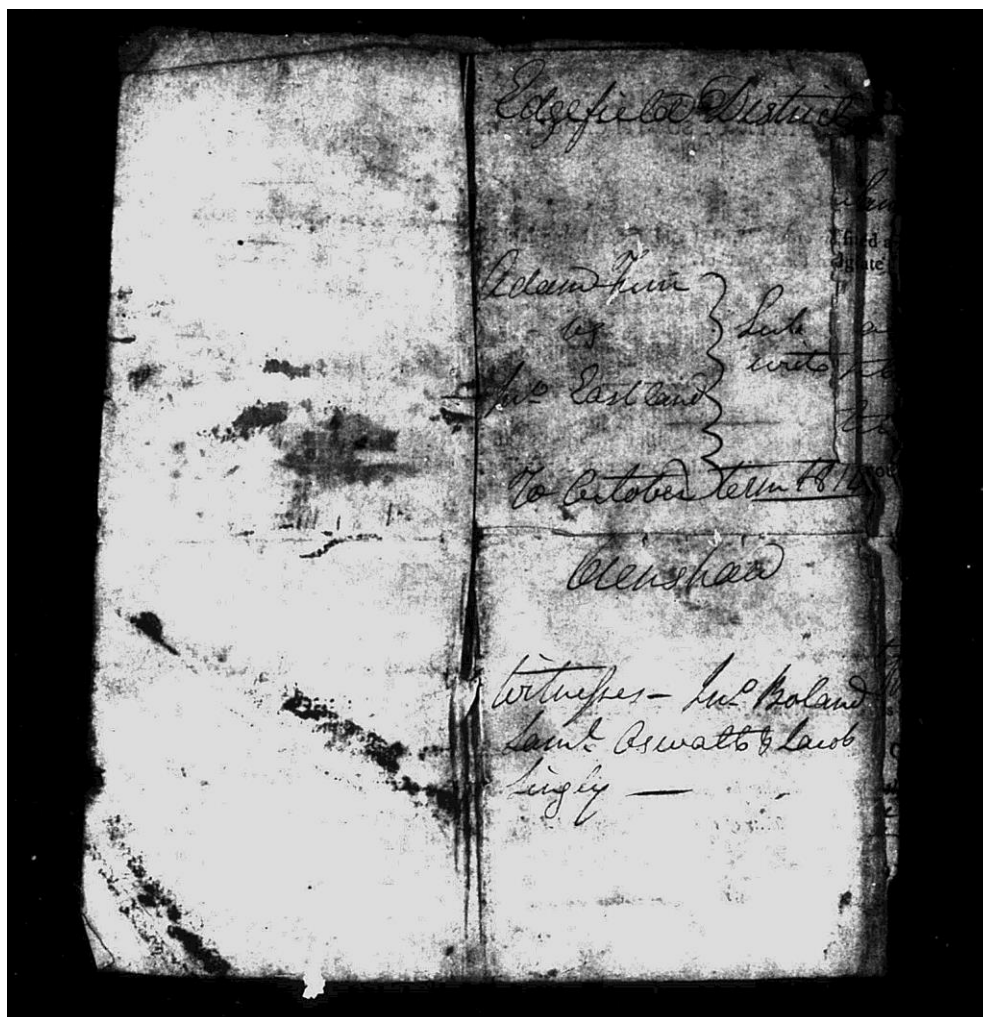 Edgefield District
Adam
vs
Jno Eastland
Sub
writs
To October term 181
Crenshaw
Witnesses – Jno Boland
Saml Oswalts & Jacob
Singly —
filed a